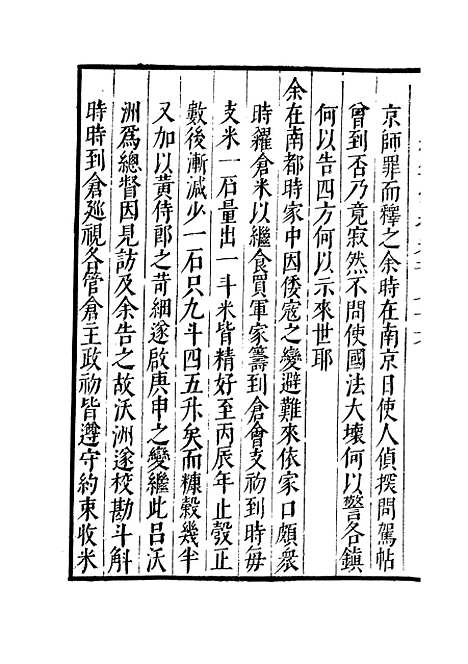 京師罪而釋之余時在南京日使人偵探問駕帖
曾到否乃竟寂然不問使國法大壞何以警各鎮
何以告四方何以示來世耶
余在南都時家中因倭寇之變避難來依家口頗衆
時糴倉米以繼食買軍家籌到倉會支初到時每
支米一石量出一斗米皆精好至丙辰年止彀正
數後漸減少一石只九斗四五升矣而糠穀幾半
又加以黃侍郎之苛細遂啟庚申之變繼此呂沃
洲爲總督因見訪及余告之故沃洲遂校勘斗斛
時時到倉廵視各管倉主政初皆遵守約束收米